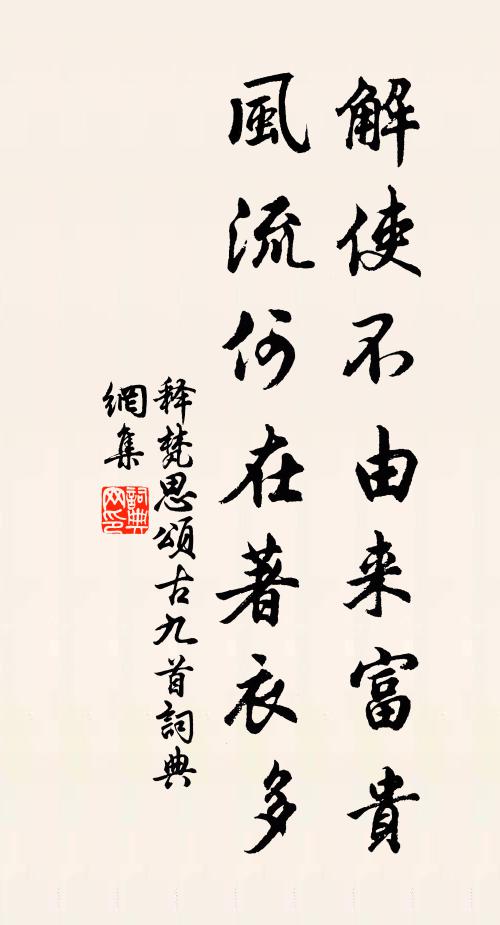 解使不由来富貴
風流何在著衣多
释梵思頌古九首詞典
網集
詞典網印